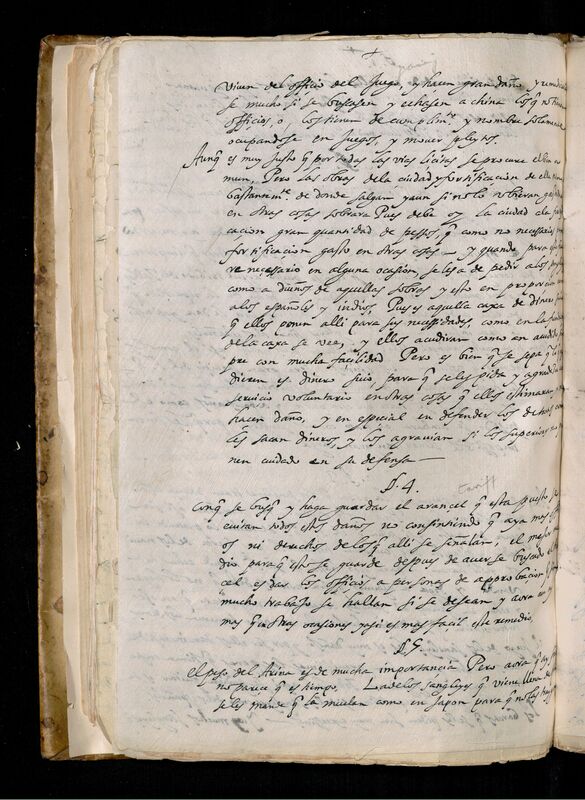 viven del officio del Juego, y hacen gran daño y remedia
se mucho si se buscasen y echasen a china los q̃ no tienen
officios o los tienen de cumplimº y nombre solamente
ocupandose en Juegos, y mover pleytos.
Aunq̃ es muy Justo q̃ por todas las vias licitas se procure el bien co
mun, Pero las obras de la ciudad y fortificacion de ella
bastantemte. de donde salgan y aun si no lo vbieran gas
en otras cosas sobrara Pues debe oy la ciudad a la
cacion gran quantidad de pessos, q̃ como no necesarios
fortificacion gasto en otras cosas — y quando para
re necessario en alguna ocasion, se les a de pedir a los
como a dueños de aquellas sobras y esto en proporcion
a los españoles y indios, Pues aquella caxa de dineros
q̃ ellos ponen alli para sus necessidades, como en la
de la caxa se vee, y ellos acudiran como an acudido
pre con mucha facilidad Pero es bien q̃ se sepa q̃
dieren es dinero suio, para q̃ se les pida y agradezca
servicio voluntario en otras cosas q̃ ellos estimaran
hacen daño, y en especial en defender los de otros
les sacan dineros, y los agravian si los superiores no
nen cuidado en su defensa —
§. 4.
tariff
Conq̃ se busq̃ y haga guardar el arancel q̃ esta puesto se
evitan todos estos daños no consintiendo q̃ aya mas
os ni derechos de los q̃ alli se señalan, el mejor
dio para q̃ esto se guarde despues de averse buscado el
cel es dar los officios a personas de approbacion
mucho trabajo se hallan si se desean y aora
mas q̃ en otras ocasiones y asi es mas facil este remedio.
§. 5.
el peso del Arina es de mucha importancia Pero aora q̃
no parece q̃ es tiempo. La de los sangleyes q̃ viene
se les mande q̃ la muelan como en Japon para q̃ no la